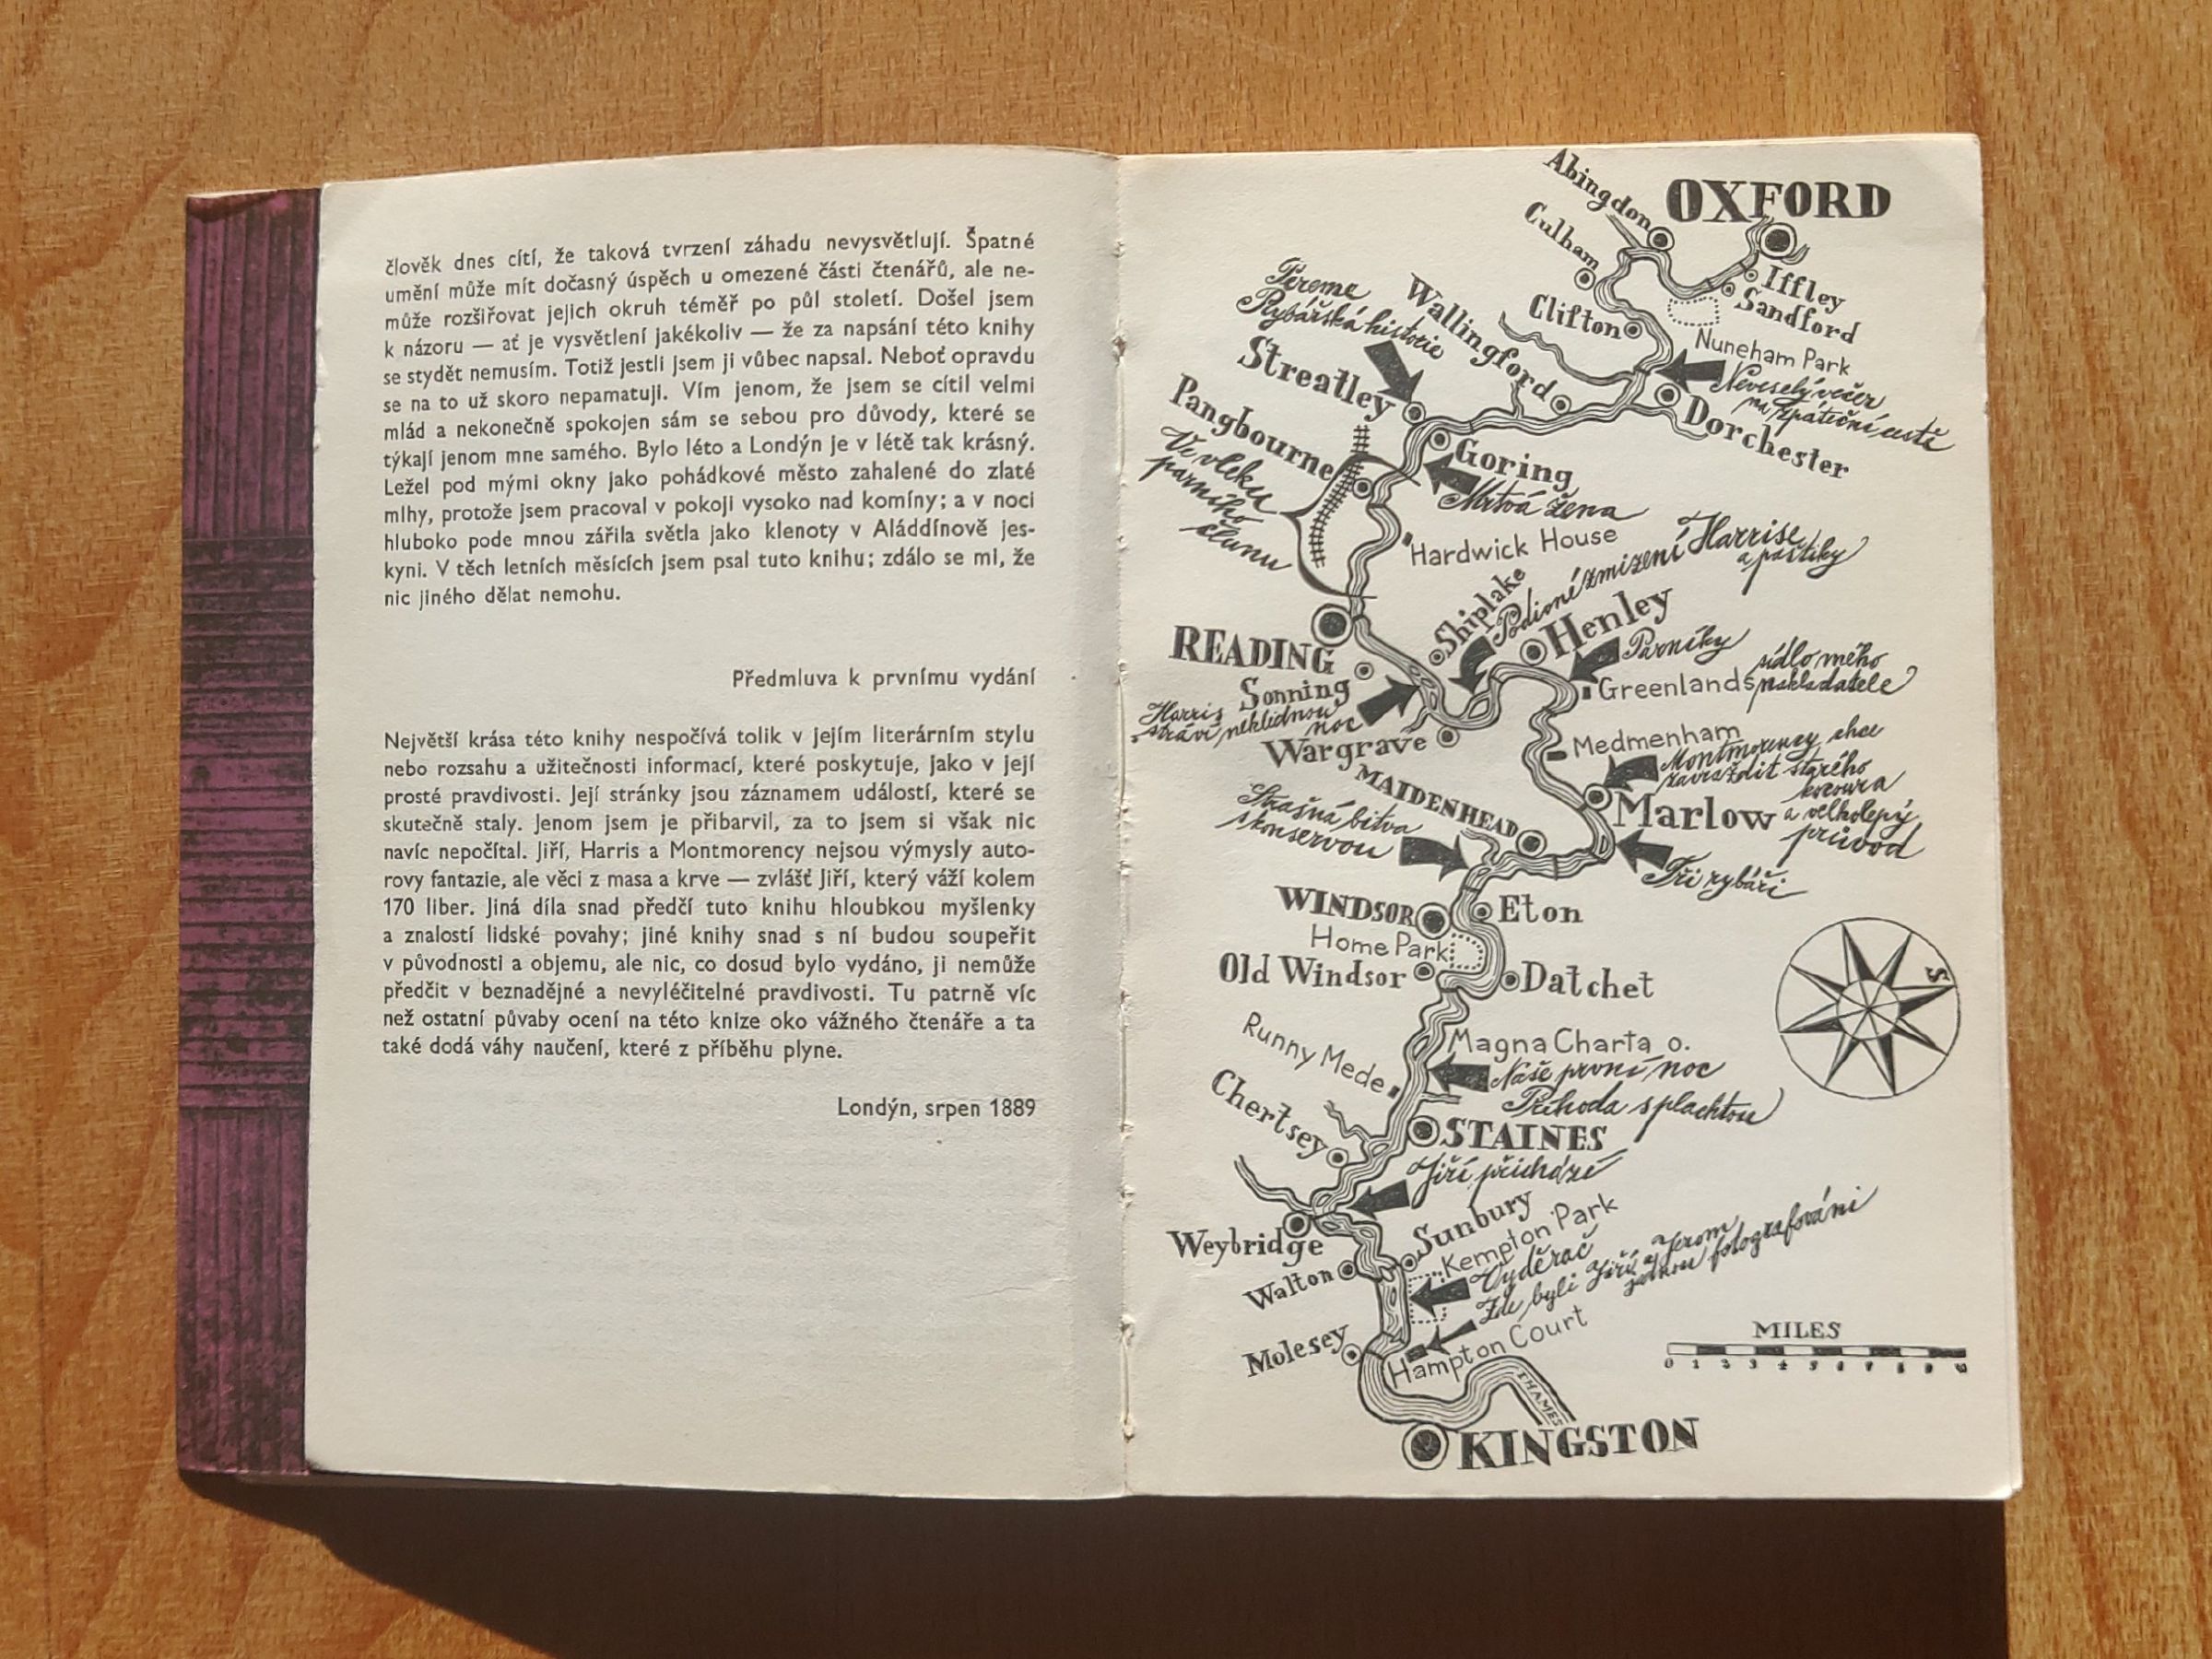 člověk dnes cítí, že taková tvrzení záhadu nevysvětlují. Špatné
umění může mít dočasný úspěch u omezené části čtenářů, ale ne-
může rozšiřovat jejich okruh téměř po půl století. Došel jsem
k názoru — ať je vysvětlení jakékoliv — že za napsání této knihy
se stydět nemusím. Totiž jestli jsem ji vůbec napsal. Neboť opravdu
se na to už skoro nepamatuji. Vím jenom, že jsem se cítil velmi
mlád a nekonečně spokojen sám se sebou pro důvody, které se
týkají jenom mne samého. Bylo léto a Londýn je v létě tak krásný.
Ležel pod mými okny jako pohádkové město zahalené do zlaté
mlhy, protože jsem pracoval v pokoji vysoko nad komíny; a v noci
hluboko pode mnou zářila světla jako klenoty v Aláddínově jes-
kyni. V těch letních měsících jsem psal tuto knihu; zdálo se mi, že
nic jiného dělat nemohu.
Předmluva k prvnímu vydání
Největší krása této knihy nespočívá tolik v jejím literárním stylu
nebo rozsahu a užitečnosti informací, které poskytuje, jako v její
prosté pravdivosti. Její stránky jsou záznamem událostí, které se
skutečně staly. Jenom jsem je přibarvil, za to jsem si však nic
navíc nepočítal. Jiří, Harris a Montmorency nejsou výmysly auto-
rovy fantazie, ale věci z masa a krve — zvlášť Jiří, který váží kolem
170 liber. Jiná díla snad předčí tuto knihu hloubkou myšlenky
a znalostí lidské povahy; jiné knihy snad s ní budou soupeřit
v původnosti a objemu, ale nic, co dosud bylo vydáno, ji nemůže
předčit v beznadějné a nevyléčitelné pravdivosti. Tu patrně víc
než ostatní půvaby ocení na této knize oko vážného čtenáře a ta
také dodá váhy naučení, které z příběhu plyne.
Londýn, srpen 1889
Abingdon
OXFORD
Culham
Iffley
Sandford
Clifton
Nuneham Park
Neveselý večer
na zpáteční cestě
Pereme
Rybářská historie
Wallingford
Streatley
Dorchester
Pangbourne
Goring
Mrtvá žena
Ve vleku
parního
člunu
Hardwick House
Podivné zmizení Harrise
a paštiky
Shiplake
Henley
READING
Parníky
Sonning
Greenlands
sídlo mého
nakladatele
Harris
stráví neklidnou
noc
Wargrave
Medmenham
Montmorency chce
zavraždit starého
kocoura
a velkolepý
průvod
MAIDENHEAD
Marlow
Strašná bitva
s konservou
Tři rybáři
WINDSOR
Eton
Home Park
Old Windsor
Datchet
S
Runny Mede
Magna Charta o.
Naše první noc
Příhoda s plachtou
Chertsey
STAINES
Jiří přichází
Weybridge
Sunbury
Kempton Park
Walton
Vyděrač
Zde byli Jiří a Jerom
jednou fotografováni
Molesey
Hampton Court
MILES
0 1 2 3 4 5 6 7 8 9 10
THAMES
KINGSTON